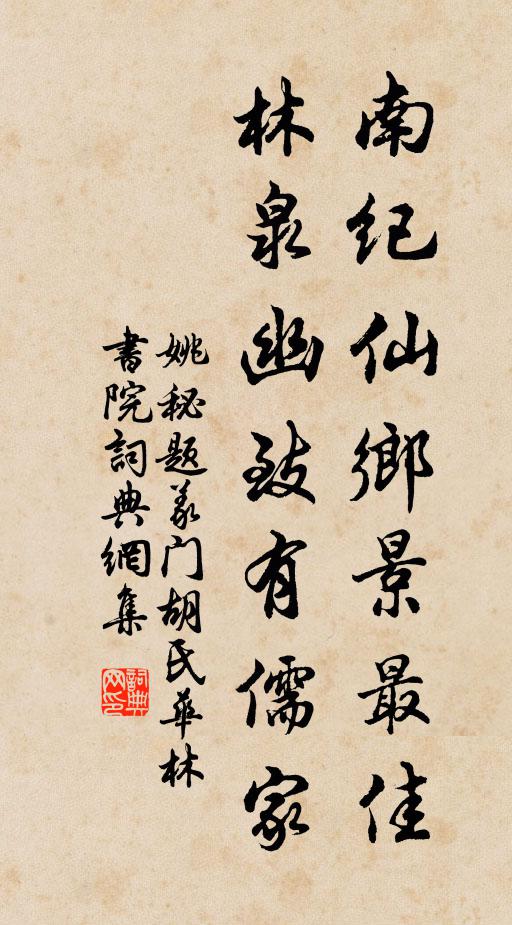 南纪仙鄉景最佳
林泉幽致有儒家
姚秘题義门胡氏華林
書院詞典網集
詞典
网印